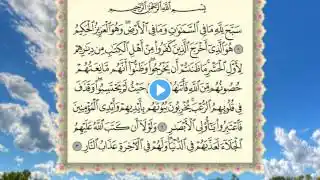 بسم الله الرحمن الرحيم
سبح لله ما في السموات وما في الأرض وهو العزيز الحكيم
هو الذي أخرج الذين كفروا من أهل الكتب من ديرهم
لأول الحشر ما ظننتم أن يخرجوا وظنوا أنهم مانعتهم
حصونهم من الله فأتىهم الله من حيث لم يحتسبوا وقذف
في قلوبهم الرعب يخربون بيوتهم بأيديهم وأيدي المؤمنين
فاعتبروا يأولي الأبصر ولولا أن كتب الله عليهم
الجلاء لعذبهم في الدنيا ولهم في الآخرة عذاب النار